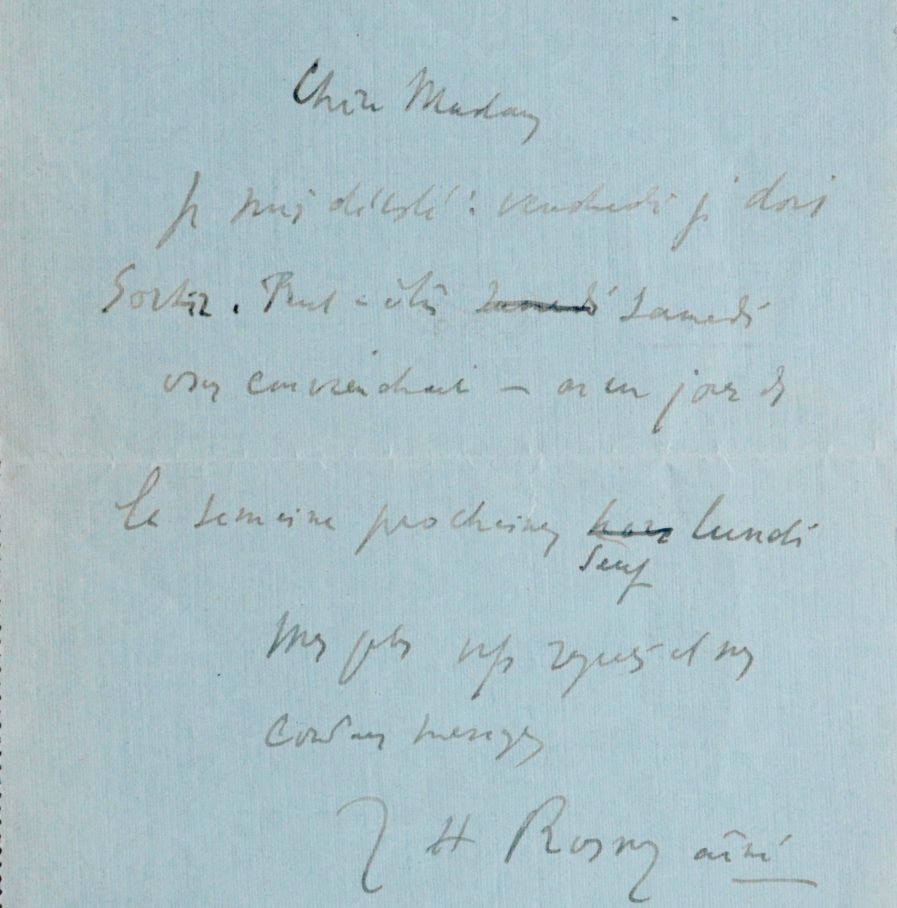 Chère Madame
Je suis désolé : vendredi je dois
Sortir. Peut-être samedi samedi
vous conviendrait – ou un jour de
la semaine prochaine hors lundi
sauf
Mes plus vifs regrets et mes
hommages
J H Rosny aîné